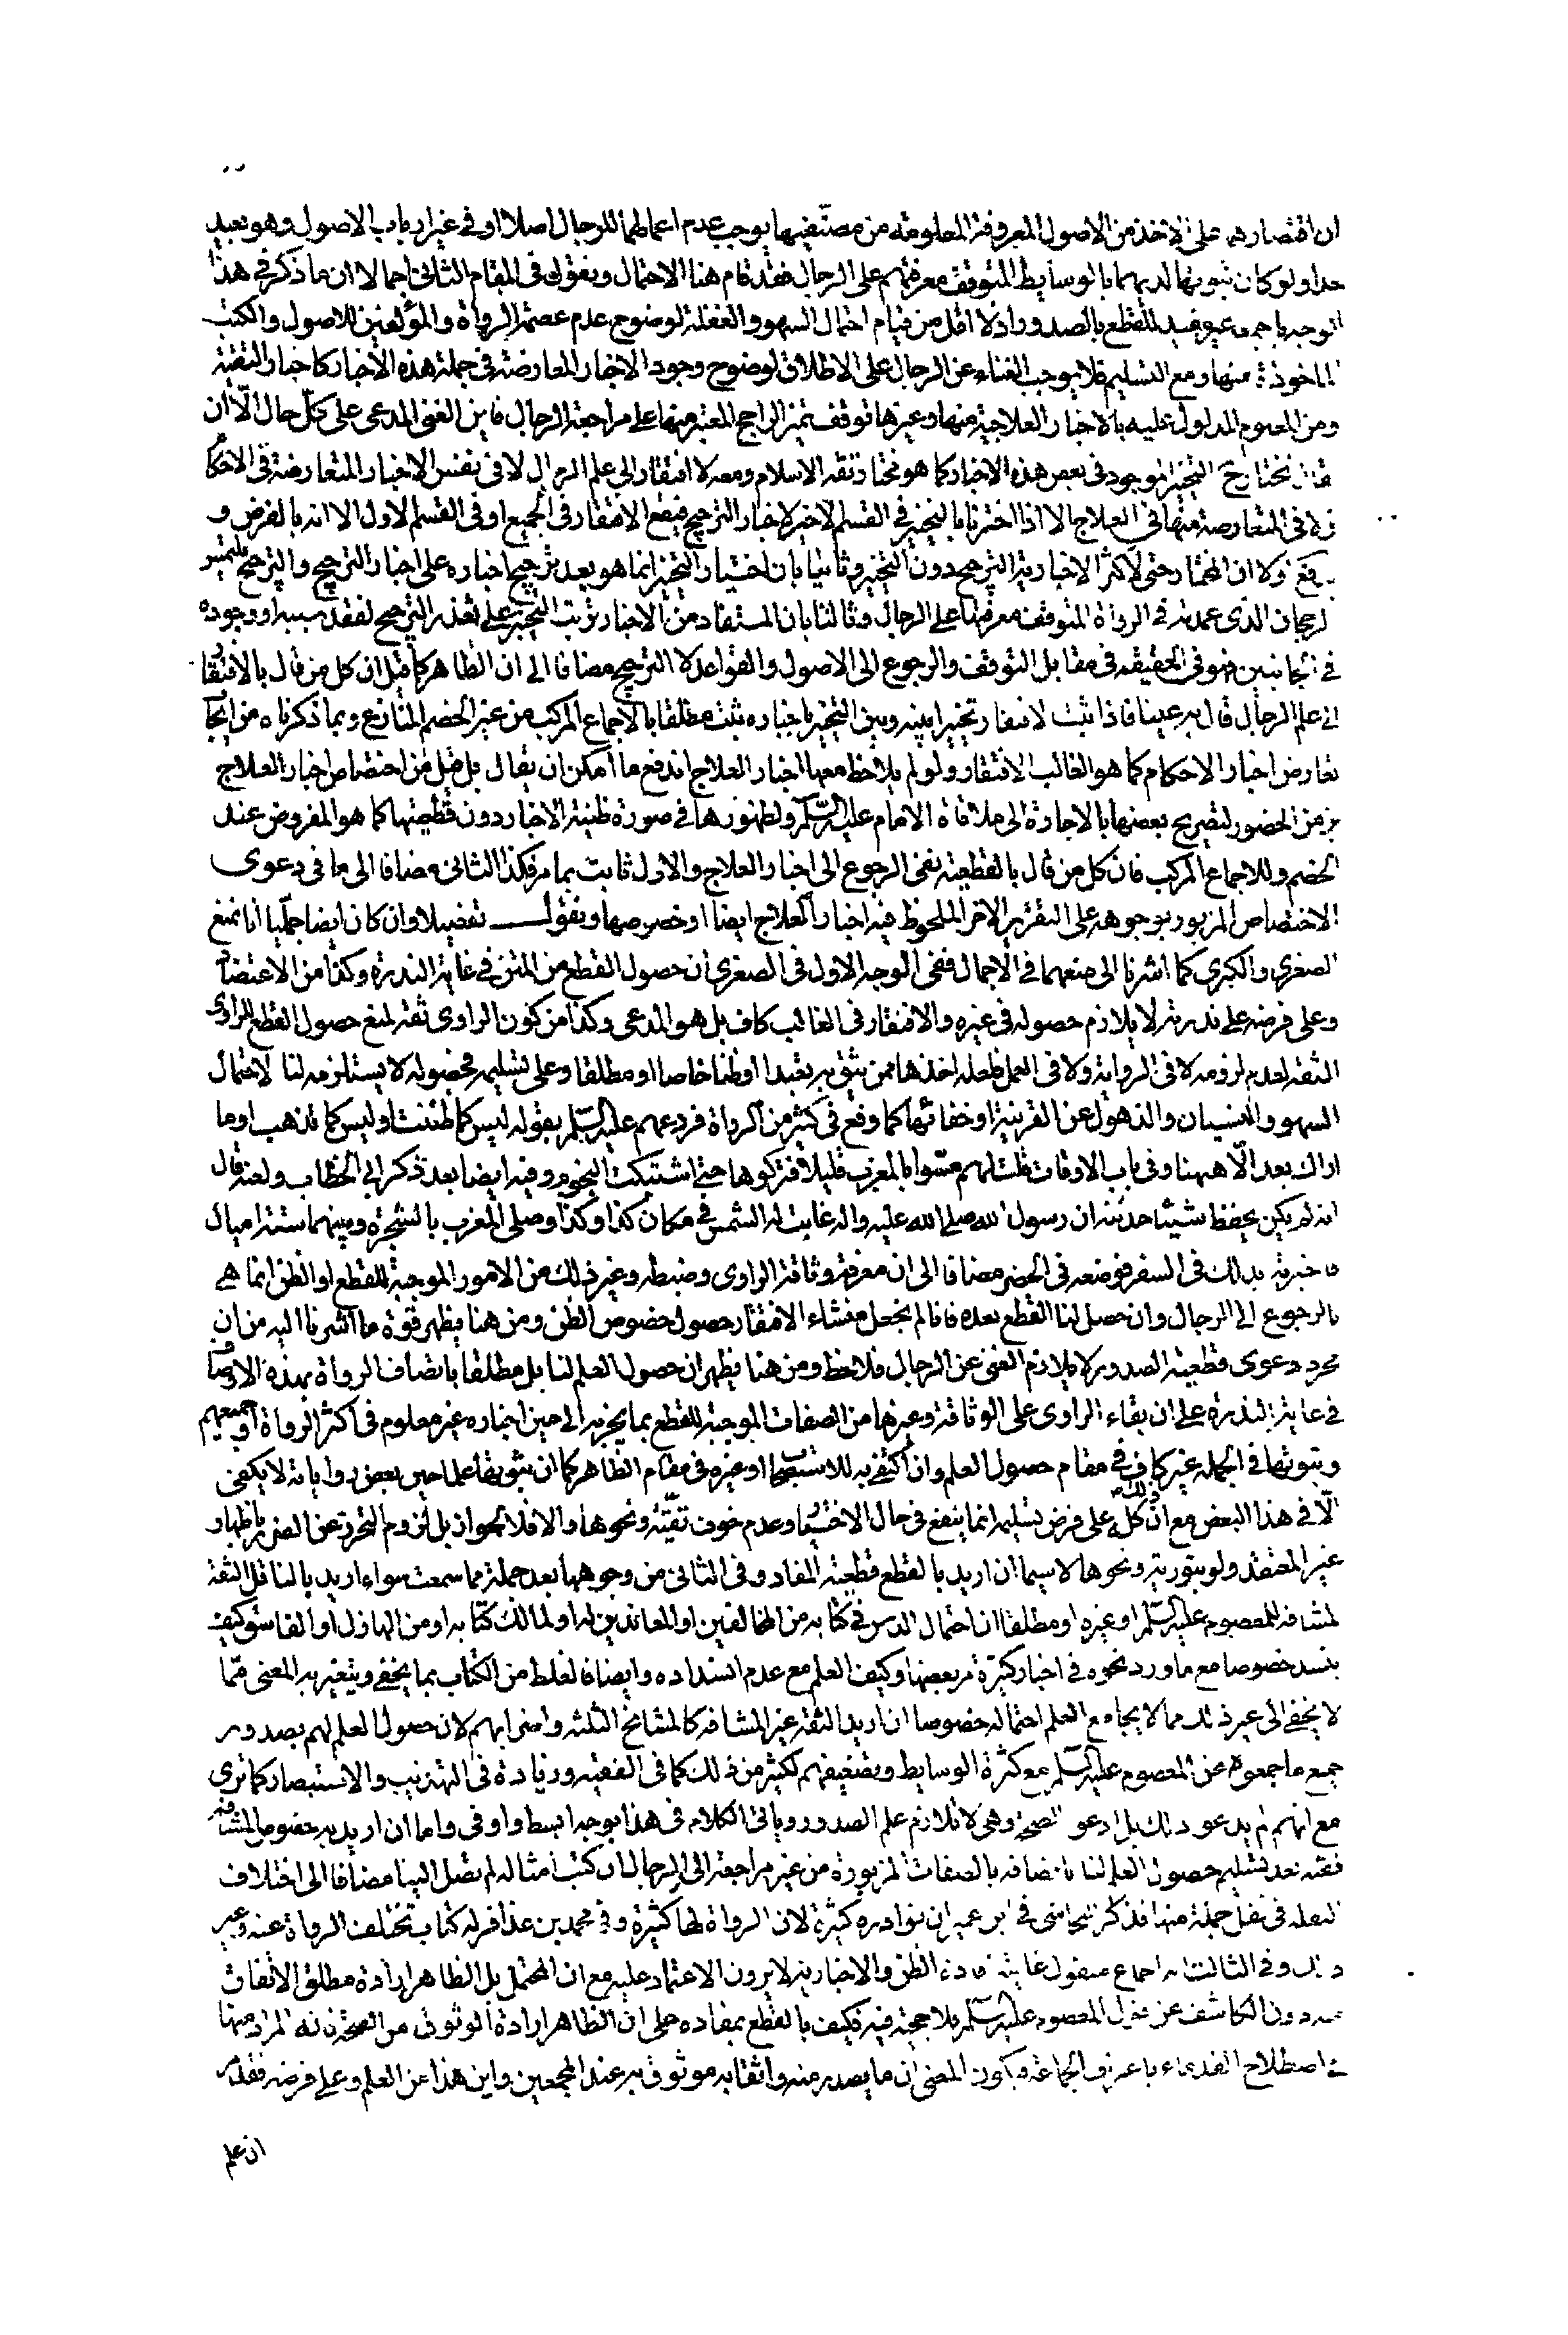 ان اقتصارهم على الاخذ من الاصول المعروفة المعلومة من مصنّفيها يوجب عدم اعمالهما للرجال اصلا او فى غير ارباب الاصول وهو بعيد
جدا ولو كان ثبوتها لديهما بالوسايط المتوقف معرفتهم على الرجال فقد قام هنا الاحتمال ونقول فى المقام الثانى اجمالا ان ما ذكر فى هذا
الوجه باجمعه غير مفيد للقطع بالصدور اذ لا اقل من قيام احتمال السهو والغفلة لوضوح عدم عصمة الرواة والمؤلفين للاصول والكتب
الماخوذة منها ومع التسليم فلا يوجب الغناء عن الرجال على الاطلاق لوضوح وجود الاخبار المعارضة فى جملة هذه الاخبار كاخبار التقية
ومن المعلوم المدلول عليه بالاخبار العلاجية منها وغيرها توقف تميز الراجح المعتبر منها على مراجعة الرجال فاين الغنى المدعى على كل حال الّا ان
يقال نختار ح التخيير الموجود فى بعض هذه الاخبار كما هو مختار ثقة الاسلام ومعه لا افتقار الى علم الرجال لا فى نفس الاخبار المتعارضة فى الاحكام
ولا فى المتعارضة منها فى العلاج الا اذا اخترنا بالتخيير فى القسم الاخير لاخبار الترجيح فيقع الافتقار فى الجميع او فى القسم الاول الا انه بالفرض و
يدفع اولا ان المختار حتى لاكثر الاخبارية الترجيح دون التخيير وثانيا بان اختيار التخيير انما هو بعد ترجيح اخباره على اخبار الترجيح والترجيح بتميز
الرجحان الذى عمدته فى الرواة المتوقف معرفتها على الرجال وثالثا بان المستفاد من الاخبار ترتب التخيير على تعذر الترجيح لفقد سببه او وجوده
فى الجانبين فهو فى الحقيقة فى مقابل التوقف والرجوع الى الاصول والقواعد لا الترجيح مضافا الى ان الظاهر كما قيل ان كل من قال بالافتقار
الى علم الرجال قال به عينا فاذا ثبت الافتقار تخييرا بينه وبين التخيير باخباره يثبت مطلقا بالاجماع المركب من غير الخصم المنازع وبما ذكرناه من ايجاب
تعارض اخبار الاحكام كما هو الغالب الافتقار ولو لم يلاحظ معها اخبار العلاج اندفع ما امكن ان يقال بل قيل من اختصاص اخبار العلاج
بزمن الحضور لتصريح بعضها بالاجارة الى ملاقاة الامام عليه السّلم ولظهورها فى صورة ظنية الاخبار دون قطعيتها كما هو المفروض عند
الخصم وللاجماع المركب فان كل من قال بالقطعية نفى الرجوع الى اخبار العلاج والاول ثابت بما مر فكذا الثانى مضافا الى ما فى دعوى
الاختصاص المزبور بوجوهه على التقرير الاخر الملحوظ فيه اخبار العلاج ايضا او خصوصها ونقول تفصيلا وان كان ايضا جمليّا انا نمنع
الصغرى والكبرى كما اشرنا الى منعهما فى الاجمال ففى الوجه الاول فى الصغرى ان حصول القطع من المتن فى غاية الندرة وكذا من الاعتضاد
وعلى فرضه على ندرته لا يلازم حصوله فى غيره والافتقار فى الغالب كاف بل هو المدعى وكذا من كون الراوى ثقة لمنع حصول القطع للراوى
الثقة لعدم لزومه لا فى الرواية ولا فى العمل فلعله اخذها ممن يثق به تعبدا او ظنا خاصا او مطلقا وعلى تسليمه فحصوله لا يستلزمه لنا لاحتمال
السهو والنسيان والذهول عن القرينة او خفائها كما وقع فى كثير من الرواة فردعهم عليه السّلم بقوله ليس كما ظننت او ليس كما تذهب او ما
اراك بعد الّا ههنا وفى باب الاوقات قلت لهم مسّوا بالمغرب قليلا فتركوها حتى اشتبكت النجوم وفيه ايضا بعد ذكر ابى الخطاب ولعنه قال
انه لم يكن يحفظ شيئا حدثته ان رسول الله صلى الله عليه واله غابت له الشمس فى مكان كذا وكذا وصلى المغرب بالشجرة وبينهما ستة اميال
فاخبرته بذلك فى السفر فوضعه فى الحضر مضافا الى ان معرفة وثاقة الراوى وضبطه وغير ذلك من الامور الموجبة للقطع او الظن انما هى
بالرجوع الى الرجال وان حصل لنا القطع بعده فانا لم نجعل منشاء الافتقار حصول خصوص الظن ومن هنا يظهر قوة ما اشرنا اليه من ان
مجرد دعوى قطعية الصدور لا يلازم الغنى عن الرجال فلاحظ ومن هنا يظهر ان حصول العلم لنا بل مطلقا باتصاف الرواة بهذه الاوصاف
فى غاية الندرة على ان بقاء الراوى على الوثاقة وغيرها من الصفات الموجبة للقطع بما يخبر به الى حين اخباره غير معلوم فى اكثر الرواة او جميعهم
وثبوتها فى الجملة غير كاف فى مقام حصول العلم وان اكتفى به للاستصحاب او غيره فى مقام الظاهر كما ان ثبوتها علما حين بعض رواياته لا يكفى
الّا فى هذا البعض مع ان كل ذلك على فرض تسليمه انما ينفع فى حال الاختيار وعدم خوف تقيّة ونحوها والا فلا لجواز بل لزوم التحرز عن الضرر باظهار
غير المعتقد ولو بتورية ونحوها لا سيما ان اريد بالقطع قطعية المفاد وفى الثانى من وجوهها بعد جملة مما سمعت سواء اريد بالناقل الثقة
المشافه للمعصوم عليه السّلم او غيره او مطلقا ان احتمال الدس فى كتابه من المخالفين او المعاندين له او لمالك كتابه او من الهاذل او الفاسق كيف
ينسد خصوصا مع ما ورد نحوه فى اخبار كثيرة مر بعضها وكيف العلم مع عدم انسداده وايضا فالغلط من الكتاب بما يخفى ويتغير به المعنى ممّا
لا يخفى الى غير ذلك مما لا يجامع العلم احتماله خصوصا ان اريد الثقة غير المشافه كالمشايخ الثلثة واضرابهم لان حصول العلم لهم بصدور
جميع ما جمعوه عن المعصوم عليه السّلم مع كثرة الوسايط وتضعيفهم لكثير من ذلك كما فى الفقيه وزيادة فى التهذيب والاستبصار كما ترى
مع انهم لم يدعوا ذلك بل ادعوا الصحة وهى لا تلازم علم الصدور وياتى الكلام فى هذا بوجه ابسط واوفى واما ان اريد به خصوص المشافه
ففيه بعد تسليم حصول العلم لنا باتصافه بالصفات المزبورة من غير مراجعة الى الرجال ان كتب امثاله لم تصل الينا مضافا الى اختلاف
النقلة فى نقل جملة منها فذكر النجاشى فى ابن عمير ان نوادره كثيرة لان الرواة لها كثيرة وفى محمد بن عذافر له كتاب تختلف الرواة عنه وغير
ذلك وفى الثالث انه اجماع منقول غايته افادة الظن والاخبارية لا يرون الاعتماد عليه مع ان المحتمل بل الظاهر ارادة مطلق الاتفاق
منه دون الكاشف عن قول المعصوم عليه السّلم فلا حجية فيه فكيف بالقطع بمفاده على ان الظاهر ارادة الوثوق من الصحة فانه المراد منها
فى اصطلاح القدماء باعتراف الجماعة فيكون المعنى ان ما يصدر منه واثقا به موثوق به عند المجمعين واين هذا من العلم وعلى فرضه فقد مر
ان علم